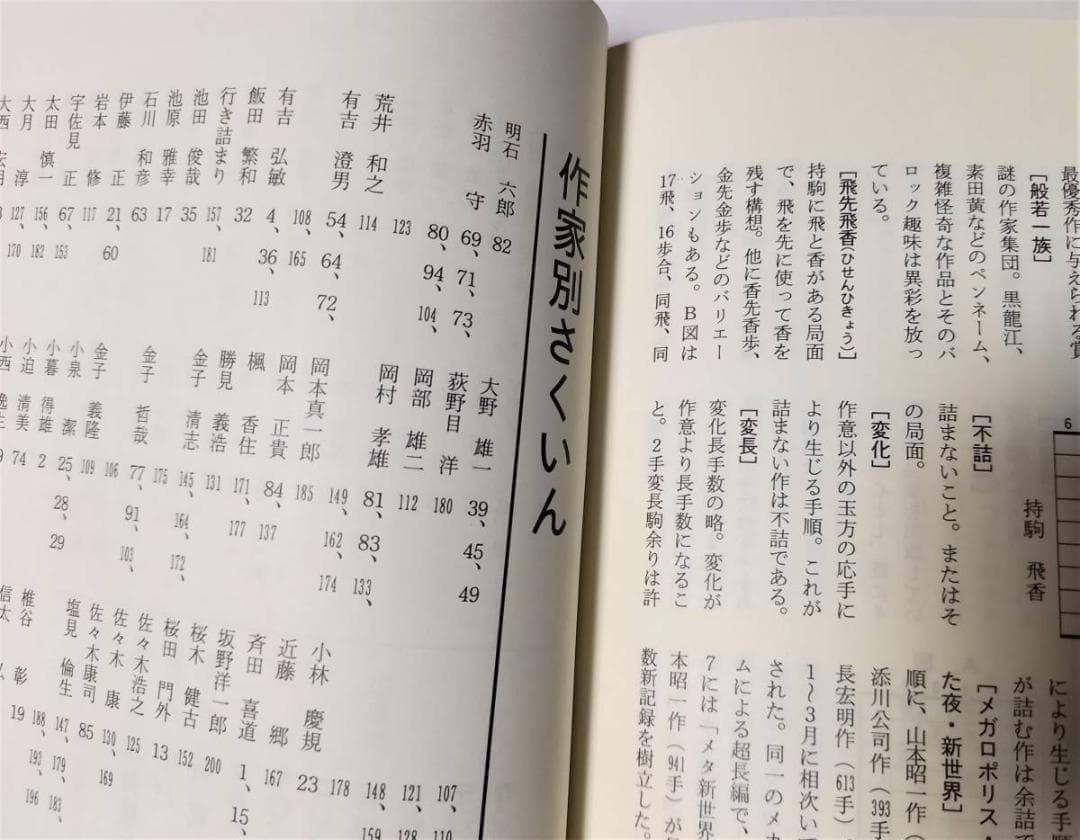 最優秀作に与えられる賞
［般若一族］
謎の作家集団。黒龍江、
素田黄などのペンネーム、
複雑怪奇な作品とそのバ
ロック趣味は異彩を放っ
ている。
［飛先飛香(ひせんひきょう)］
持駒に飛と香がある局面
で、飛を先に使って香を
残す構想。他に香先香歩、
金先金歩などのバリエー
ションもある。B図は
17飛、16歩合、同飛、同
6
持駒 飛香
［不詰］
詰まないこと。またはそ
の局面。
［変化］
作意以外の玉方の応手に
より生じる手順。これが
詰まない作は不詰である。
［変長］
変化長手数の略。変化が
作意より長手数になるこ
と。2手変長駒余りは許
により生じる手
が詰む作は余詰で
［メガロポリス
た夜・新世界］
順に、山本昭一作（
添川公司作（393手
長宏明作（613手）
1〜3月に相次いで
された。同一のメカ
ムによる超長編で、
7には「メタ新世界
本昭一作（941手）が
数新記録を樹立した。
作家別さくいん
明石 六郎 82
赤羽 守 69、71、73、
80、94、104、
123
荒井 和之 114
有吉 澄男 54、64、72、
108、165
有吉 弘敏 4、36、113
飯田 繁和 32
行き詰まり 157、181
池田 俊哉 35
池原 雅幸 17
石川 和彦 63
伊藤 正 21、60
岩本 修 117
宇佐見 正 67、153
太田 慎一 156、182
大月 淳 127、170
大西
大野 雄一 39、45、49
荻野目 洋 180
岡部 雄二 112
岡村 孝雄 81、83、133、
149、162、174
岡本真一郎 185
岡本 正貴 84、137
楓 香住 171、177
勝見 義浩 131
金子 清志 145、164、172、
175
金子 哲哉 77、91、103、
106
金子 義隆 109
小泉 潔 25、28、29
小暮 得雄 2
小迫 清美 74
小西 逸生
107、110
121、128
148、159
178
小林 慶規 23
近藤 郷 167
斉田 喜道 1、15、
坂野洋一郎 200
桜木 健古 152
桜田 門外 13
佐々木浩之 125
佐々木 康 130、169
佐々木康司 85
塩見 倫生 147、179、183、
188、193、196
椎谷 彰 19
信太